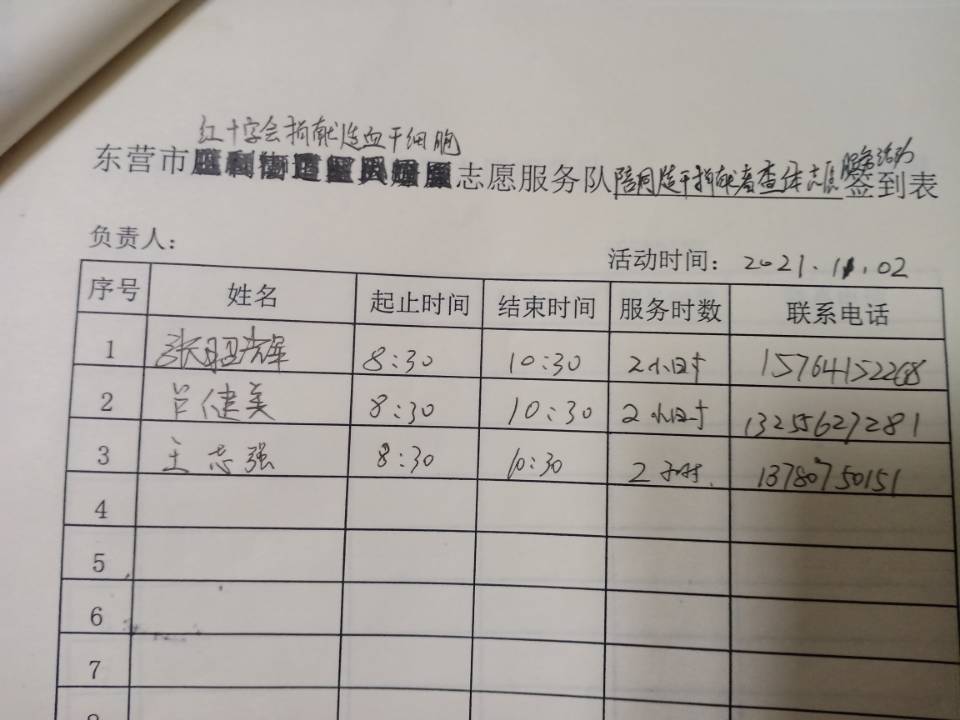 红十字会捐献造血干细胞
东营市 志愿服务队陪同造干捐献者查体志愿服务活动签到表
负责人：
活动时间：2021.11.02
序号 姓名 起止时间 结束时间 服务时数 联系电话
1 张昭辉 8:30 10:30 2小时 15764152268
2 吕健美 8:30 10:30 2小时 13255627281
3 王志强 8:30 10:30 2小时. 13780750151
4
5
6
7
8